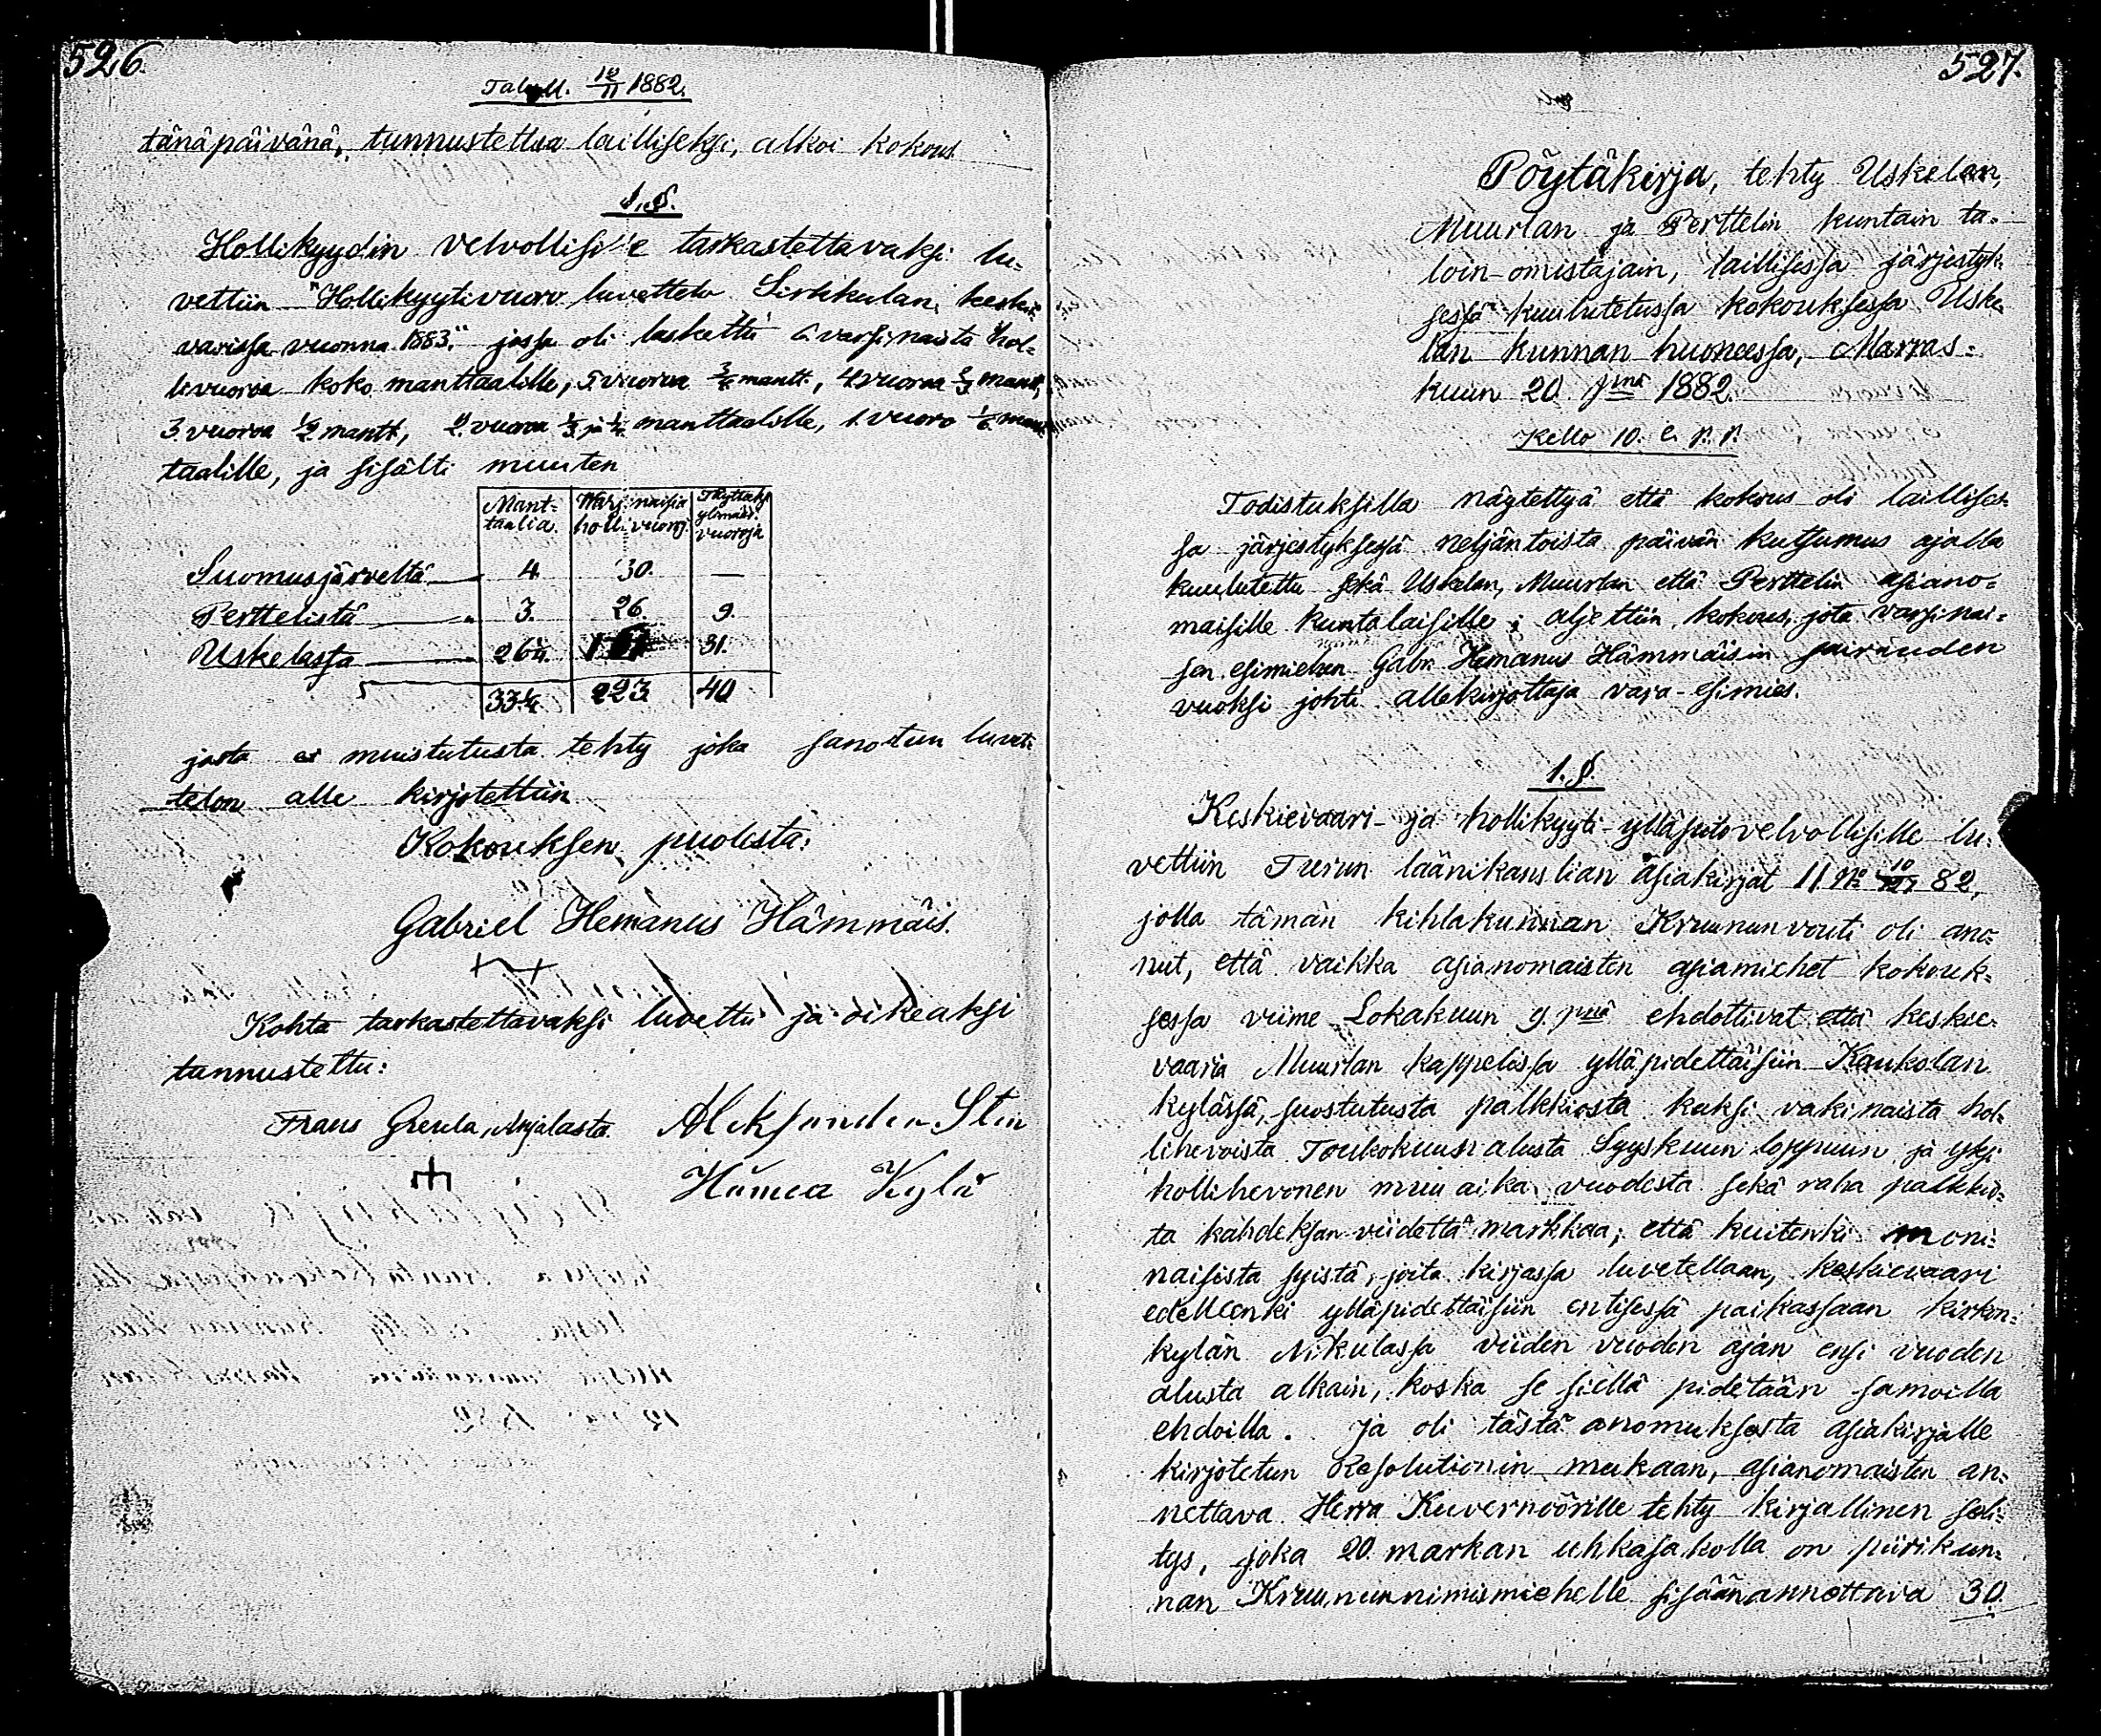 526.
Taloll. 12/11 1882.
tänäpäivänä, tunnustettua lailliseksi, alkoi kokous.
1. §.
Hollikyydin velvollisille tarkastettavaksi lu-
vettiin "Hollikyytivuoro luvettelo Sirkkulan keski-
varissa vuonna 1883." jossa oli laskettu 6 varsinaista hol-
livuoroa koko manttaalille, 5 vuoroa 3/4 mantt., 4 vuoroa 2/3 mantt,
3 vuoroa 1/2 mantt, 2 vuoroa 1/3 ja 1/4 manttaalille, 1 vuoro 1/6 mant
taalille, ja sisälti muuten
Mant- Warsinaisia
taalia. hollivuoroj. ylimäär. vuoroja
Suomusjärveltä 4. 30. —
Perttelistä 3. 26 9.
Uskelassa 26 1/4 31.
33 1/4 223 40
josta ei muistutusta tehty joka sanotun luvet-
telon alle kirjotettiin
Kokouksen puolesta:
Gabriel Hemanus Hämmäis.
Kohta tarkastettavaksi luvettu ja oikeaksi
tunnustettu:
Frans Greula, Anjalasta. Aleksander Sten
Hämeen Kylä
527.
Pöytäkirja, tehty Uskelan,
Muurlan ja Perttelin kuntain ta-
loin-omistajain, laillisessa järjestyk-
sessä kuulutetussa kokouksessa Uske
lan kunnan huoneessa, Marras-
kuun 20 pnä 1882.
Kello 10. e. p. p.
Todistuksilla näytettyä että kokous oli laillises-
sa järjestyksessä neljäntoista päivän kutsumus ajalla
kuulutettu sekä Uskelan, Muurlan että Perttelin asiano-
maisille kuntalaisille; aljettiin kokous, jota varsinai-
sen esimiehen Gabr. Hemanus Hämmäisin sairauden
vuoksi johti allekirjottaja vara-esimies.
1. §.
Keskievaari- ja hollikyyti-ylläpitovelvollisille lu-
vettiin Turun läänikanslian asiakirjat 11 No 10/127 82,
jolla tämän kihlakunnan Kruununvouti oli ano-
nut, että vaikka asianomaisten asiamiehet kokouk-
sessa viime Lokakuun 9 pnä ehdottivat että keskie-
vaaria Muurlan kappelissa ylläpidettäisiin Kaukolan
kylässä, suostutusta palkkiosta kaksi vakinaista hol-
lihevoista Toukokuun alusta Syyskuun loppuun ja yksi
hollihevonen muu aika vuodesta sekä raha palkkio-
ta kahdeksan viidettä markkaa; että kuitenki moni-
naisista syistä, joita kirjassa luvetellaan, keskievaari
edelleenki ylläpidettäisiin entisessä paikassaan kirkon-
kylän Nikulassa viiden vuoden ajan ensi vuoden
alusta alkain, koska se siellä pidetään samoilla
ehdoilla. Ja oli tästä anomuksesta asiakirjalle
kirjotetun Resolutionin mukaan, asianomaisten an-
nettava Herra Kuvernöörille tehty kirjallinen seli-
tys, joka 20 markan uhkasakolla on piirikun-
nan Kruununnimismiehelle sisäänannettava 30.